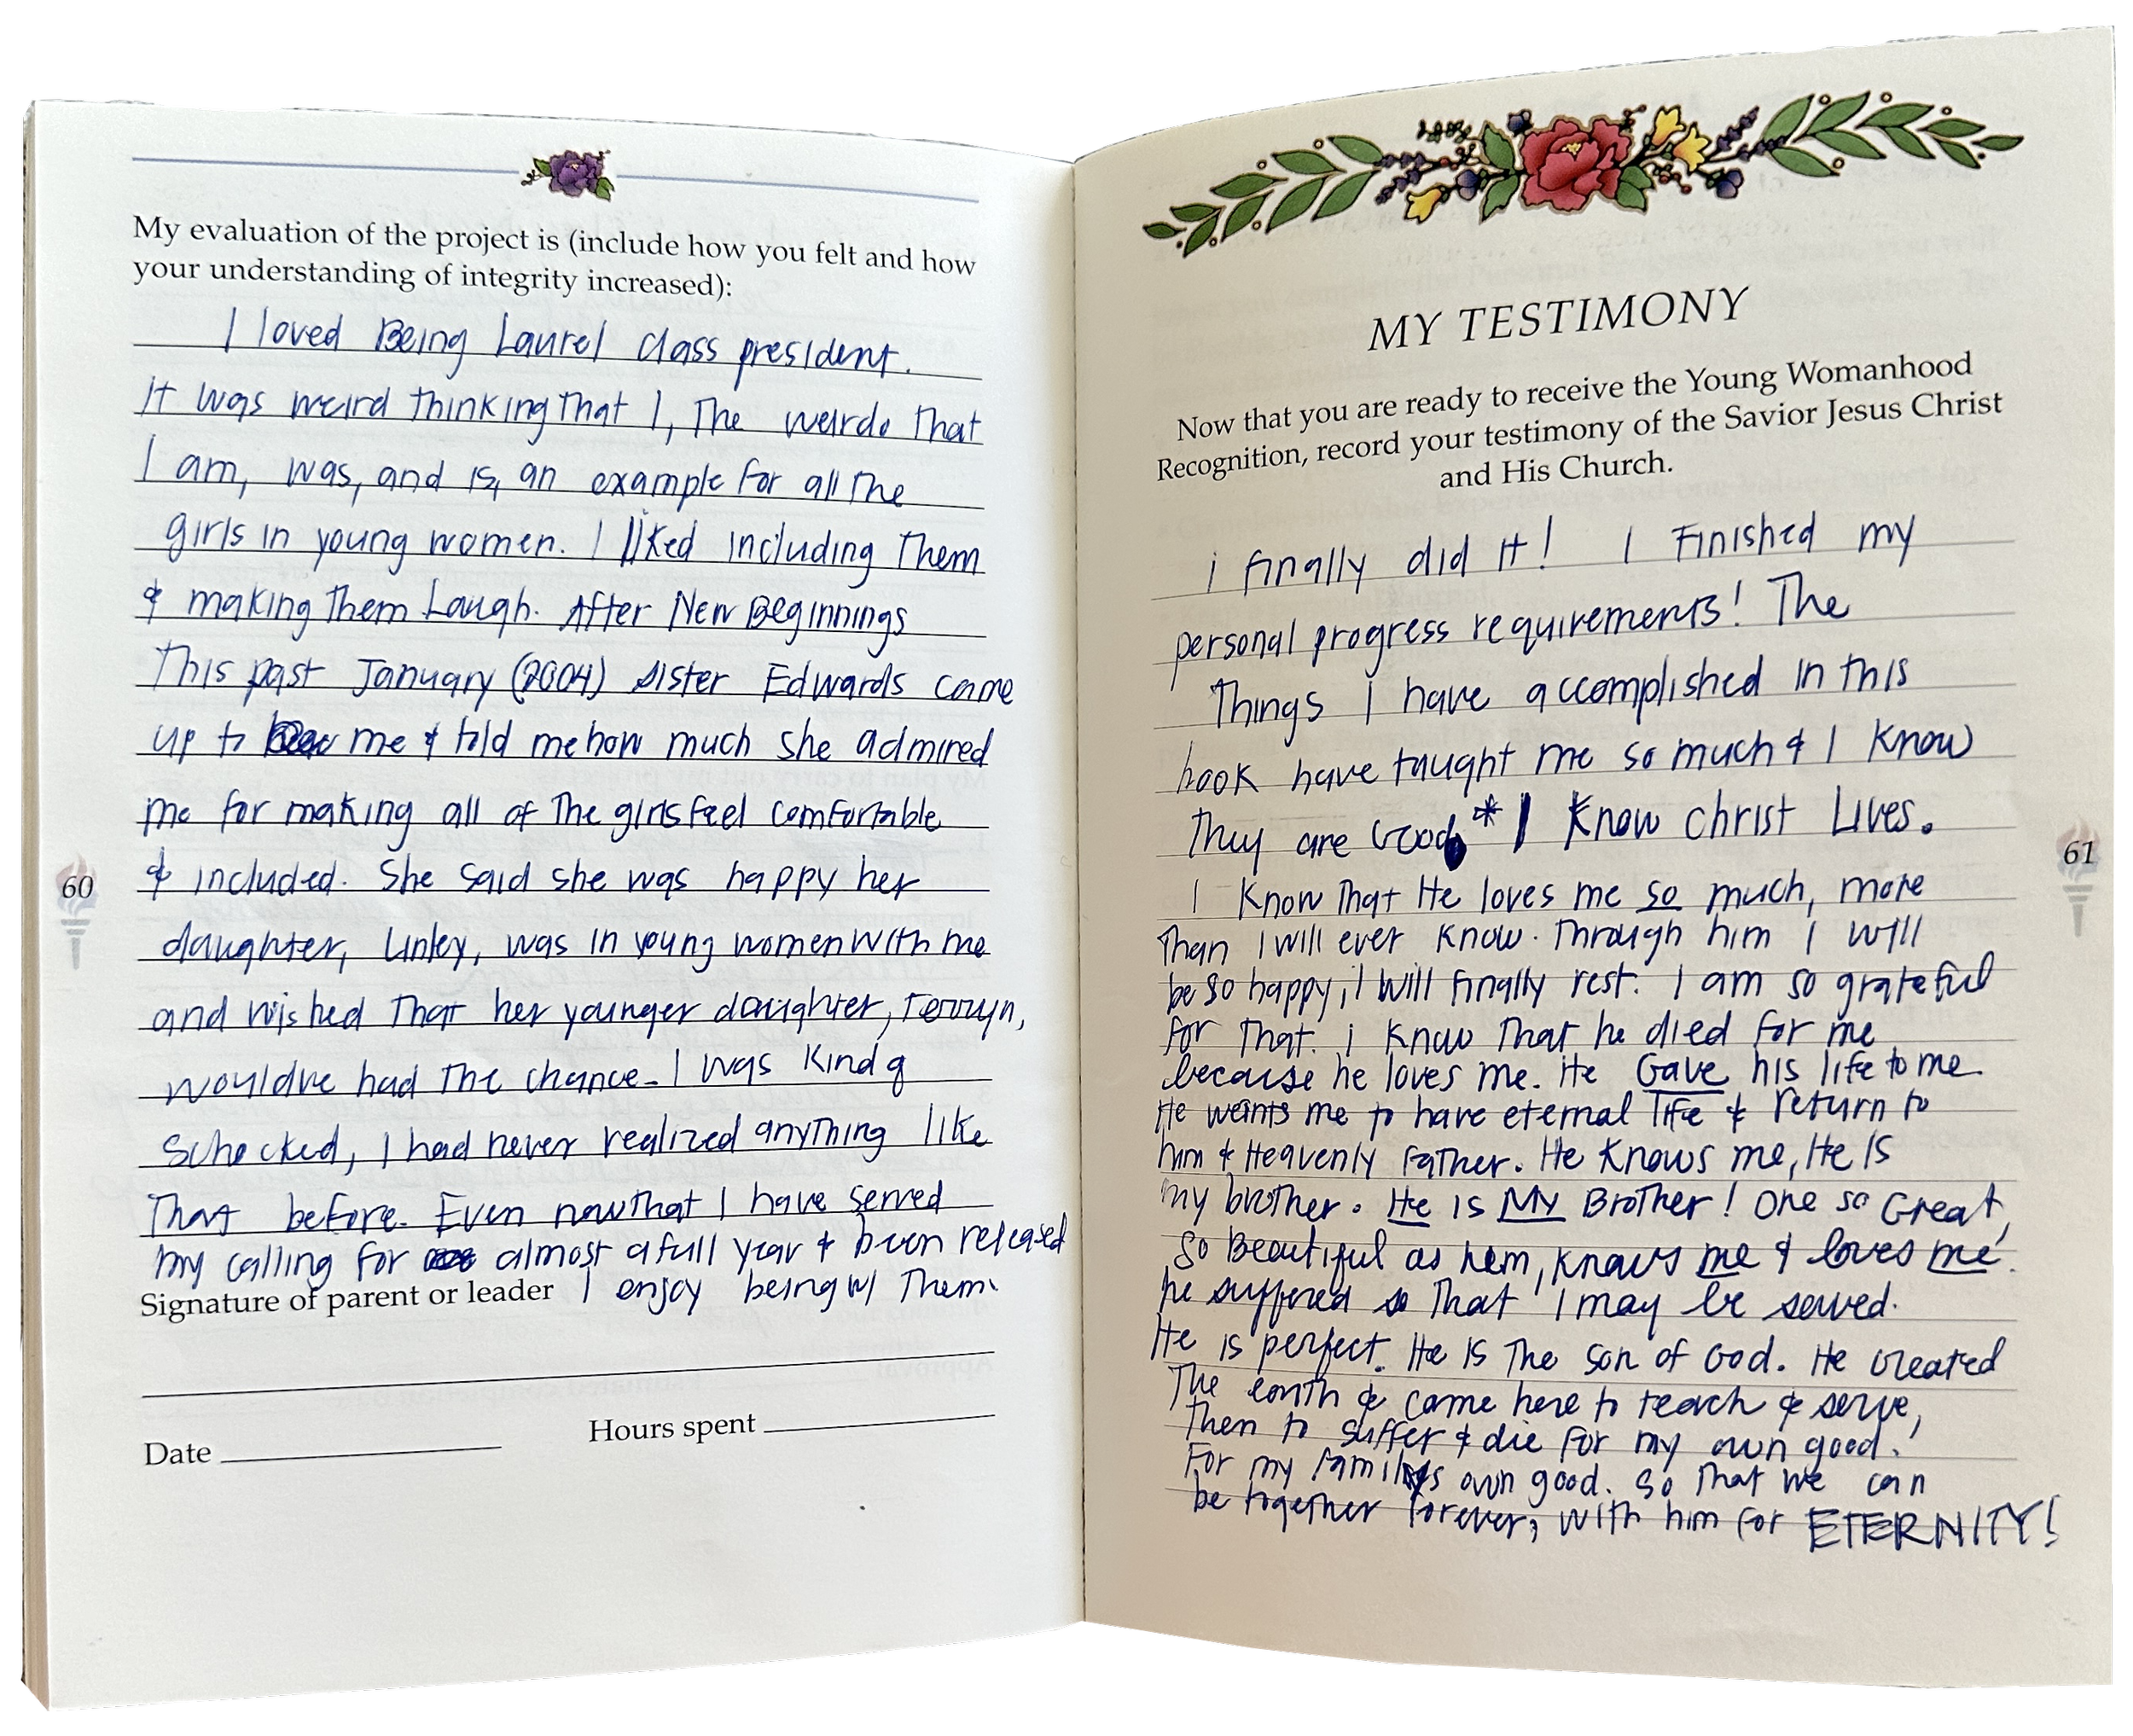 My evaluation of the project is (include how you felt and how
your understanding of integrity increased):
I loved Being Laurel class president.
It was weird thinking That I, The weirdo That
I am, was, and is, an example for all The
girls in young women. I liked including Them
& making Them Laugh. After New Beginnings
This past January (2004) Sister Edwards came
up to me & told me how much she admired
me for making all of The girls feel comfortable
& included. She said she was happy her
daughter, Linley, was in young women with me
and wished That her younger daughter,
would've had The chance. I was Kinda
schocked, I had never realized anything like
That before. Even now That I have served
my calling for almost a full year & been released
Signature of parent or leader I enjoy being w/ Them.
Date Hours spent
60
MY TESTIMONY
Now that you are ready to receive the Young Womanhood
Recognition, record your testimony of the Savior Jesus Christ
and His Church.
i finally did it! I Finished my
personal progress requirements! The
Things I have accomplished in this
book have taught me so much & I Know
They are Good. * I Know Christ Lives.
I Know That He loves me so much, more
Than I will ever Know. Through him I will
be so happy, I will finally rest. I am so grateful
for That. i Know That he died for me
because he loves me. He Gave his life to me.
He wants me to have eternal life & return to
him & Heavenly Father. He Knows me, He Is
my brother. He is My Brother! One so Great,
so Beautiful as him, Knows me & loves me.
he suffered so That I may be saved.
He is perfect. He Is The son of God. He created
The earth & came here to teach & serve,
Then to suffer & die for my own good.
For my family's own good. So That we can
be together forever, with him for ETERNITY!
61